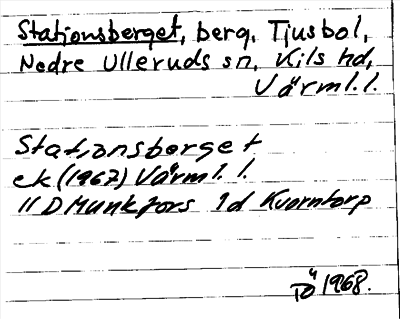 Stationsberget, berg, Tjusbol,
Nedre Ulleruds sn, Kils hd,
Värml. l.
Stationsberget
ek (1967) Värml. l.
11 D Munkfors 1d Kvarntorp
PÖ 1968.